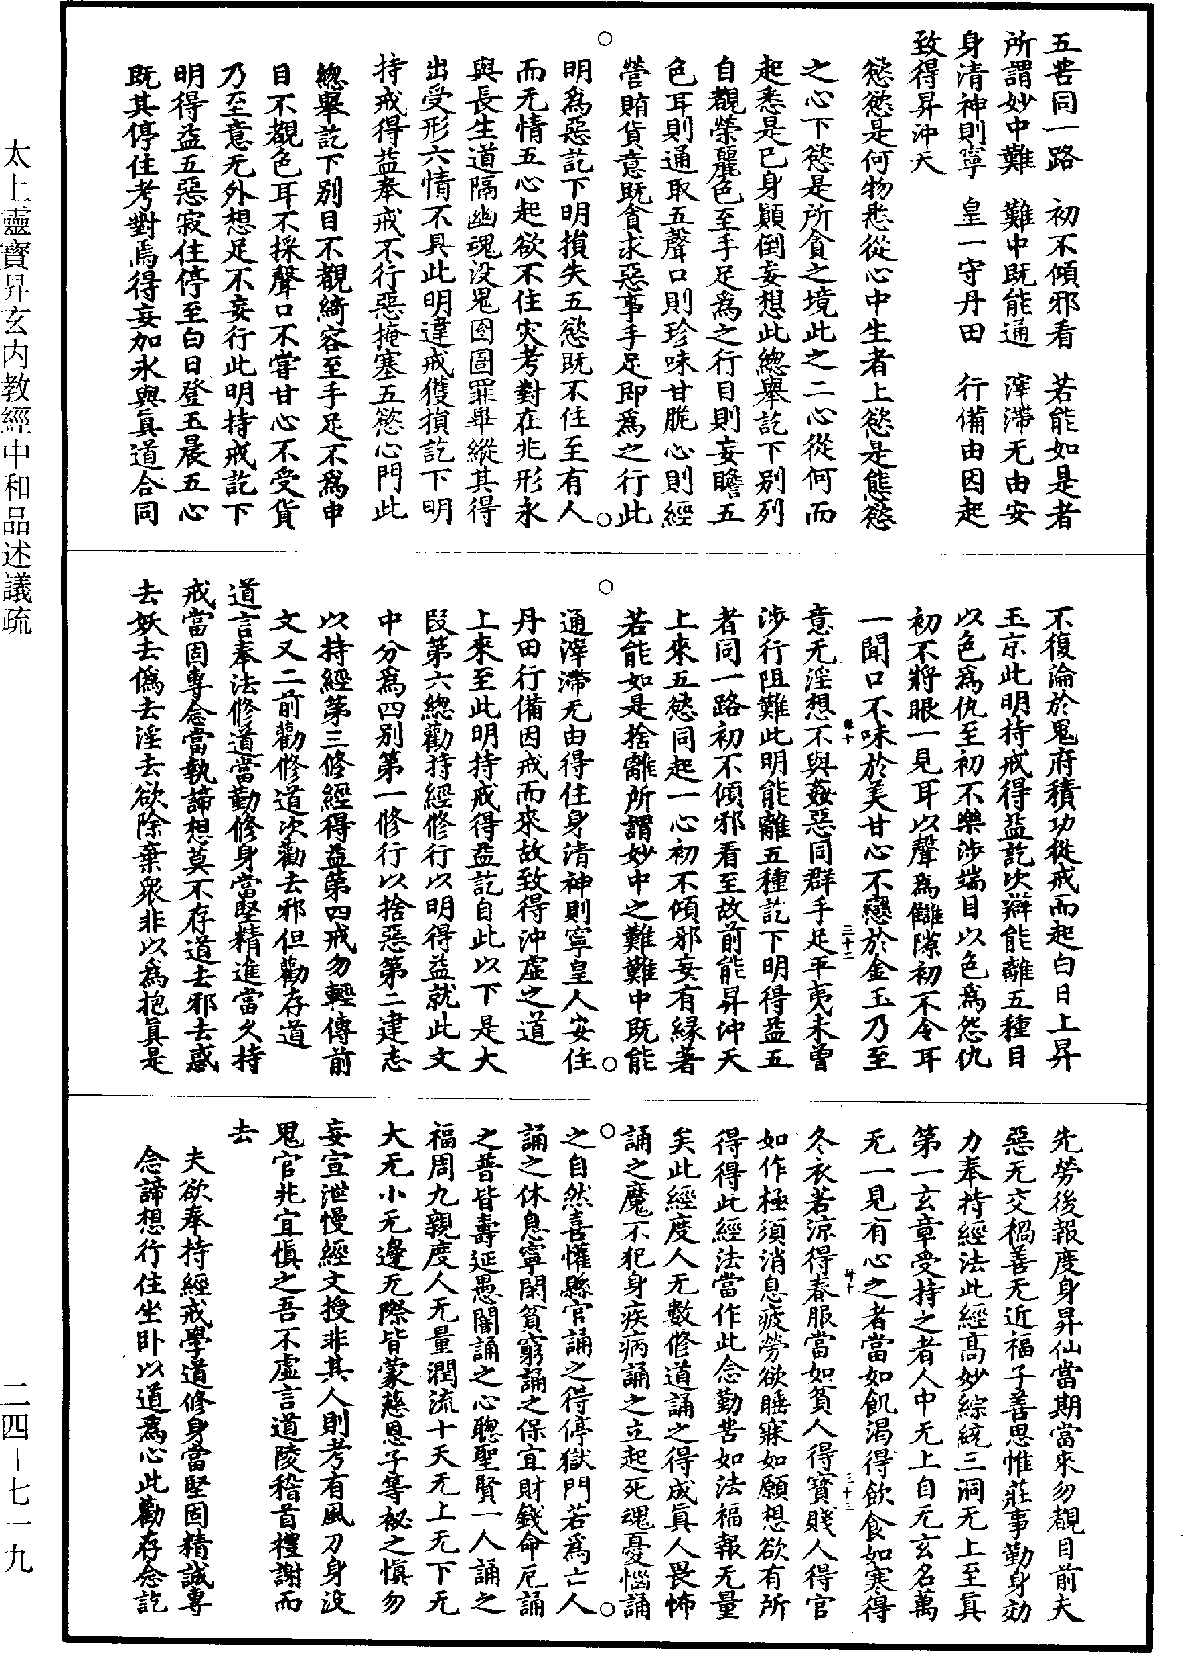 五苦同一路　初不傾邪看　若能如是者
所謂妙中難　難中既能通　滓滯无由安
身清神則寧　皇一守丹田　行備由因起
致得昇沖天
慾慾是何物悉從心中生者上慾是能慾
之心下慾是所貪之境此之二心從何而
起悉是已身顛倒妄想此總舉訖下別列
自觀榮麗色至手足為之行目則妄瞻五
色耳則通取五聲口則珍味甘脆心則經
營賄貨意既貪求惡事手足即為之行此
明為惡訖下明損失五慾既不住至有人
而无情五心起欲不住灾考對在兆形永
與長生道隔幽魂没鬼囹圄罪畢縱其得
出受形六情不具此明違戒獲損訖下明
持戒得益奉戒不行惡掩塞五慾心門此
總舉訖下別目不觀綺容至手足不為申
目不觀色耳不採聲口不嘗甘心不受貨
乃至意无外想足不妄行此明持戒訖下
明得益五惡寂住停至白日登五晨五心
既其停住考對焉得妄加永與真道合同
不復淪於鬼府積功從戒而起白日上昇
玉京此明持戒得益訖次辯能離五種目
以色為仇至初不樂涉端目以色為怨仇
初不將眼一見耳以聲為讎隙初不令耳
一聞口不味於美甘心不戀於金玉乃至
意无淫想不與姦惡同群手足平夷未曾
涉行阻難此明能離五種訖下明得益五
者同一路初不傾邪看至故前能昇沖天
上來五慾同起一心初不傾邪妄有緣著
若能如是捨離所謂妙中之難難中既能
通滓滯无由得住身清神則寧皇人安住
丹田行備因戒而來故致得沖虛之道
上來至此明持戒得益訖自此以下是大
段第六總勸持經修行以明得益就此文
中分為四別第一修行以捨惡第二建志
以持經第三修經得益第四戒勿輕傳前
文又二前勸修道次勸去邪但勸存道
道言奉法修道當勤修身當堅精進當久持
戒當固專念當執諦想莫不存道去邪去惑
去妖去偽去淫去欲除棄衆非以為抱真是
先勞後報度身昇仙當期當來勿覩目前夫
惡无交禍善无近福子善思惟莊事勤身効
力奉持經法此經高妙綜統三洞无上至真
第一玄章受持之者人中无上自无玄名萬
无一見有心之者當如飢渴得飲食如寒得
冬衣若涼得春服當如貧人得寶賤人得官
如作極須消息疲勞欲睡寐如願想欲有所
得得此經法當作此念勤苦如法福報无量
矣此經度人无數修道誦之得成真人畏怖
誦之魔不犯身疾病誦之立起死魂憂惱誦
之自然喜懽縣官誦之得停獄門若為亡人
誦之休息寧閑貧窮誦之保宜財錢命厄誦
之普皆壽延愚闇誦之心聰聖賢一人誦之
福周九親度人无量潤流十天无上无下无
大无小无邊无際皆蒙慈恩子等袐之慎勿
妄宣泄慢經文授非其人則考有風刀身没
鬼官兆宜慎之吾不虛言道陵稽首禮謝而
去
夫欲奉持經戒學道修身當堅固精誠專
念諦想行住坐卧以道為心此勸存念訖
太上靈寶昇玄内教經中和品述議疏
二四—七一九